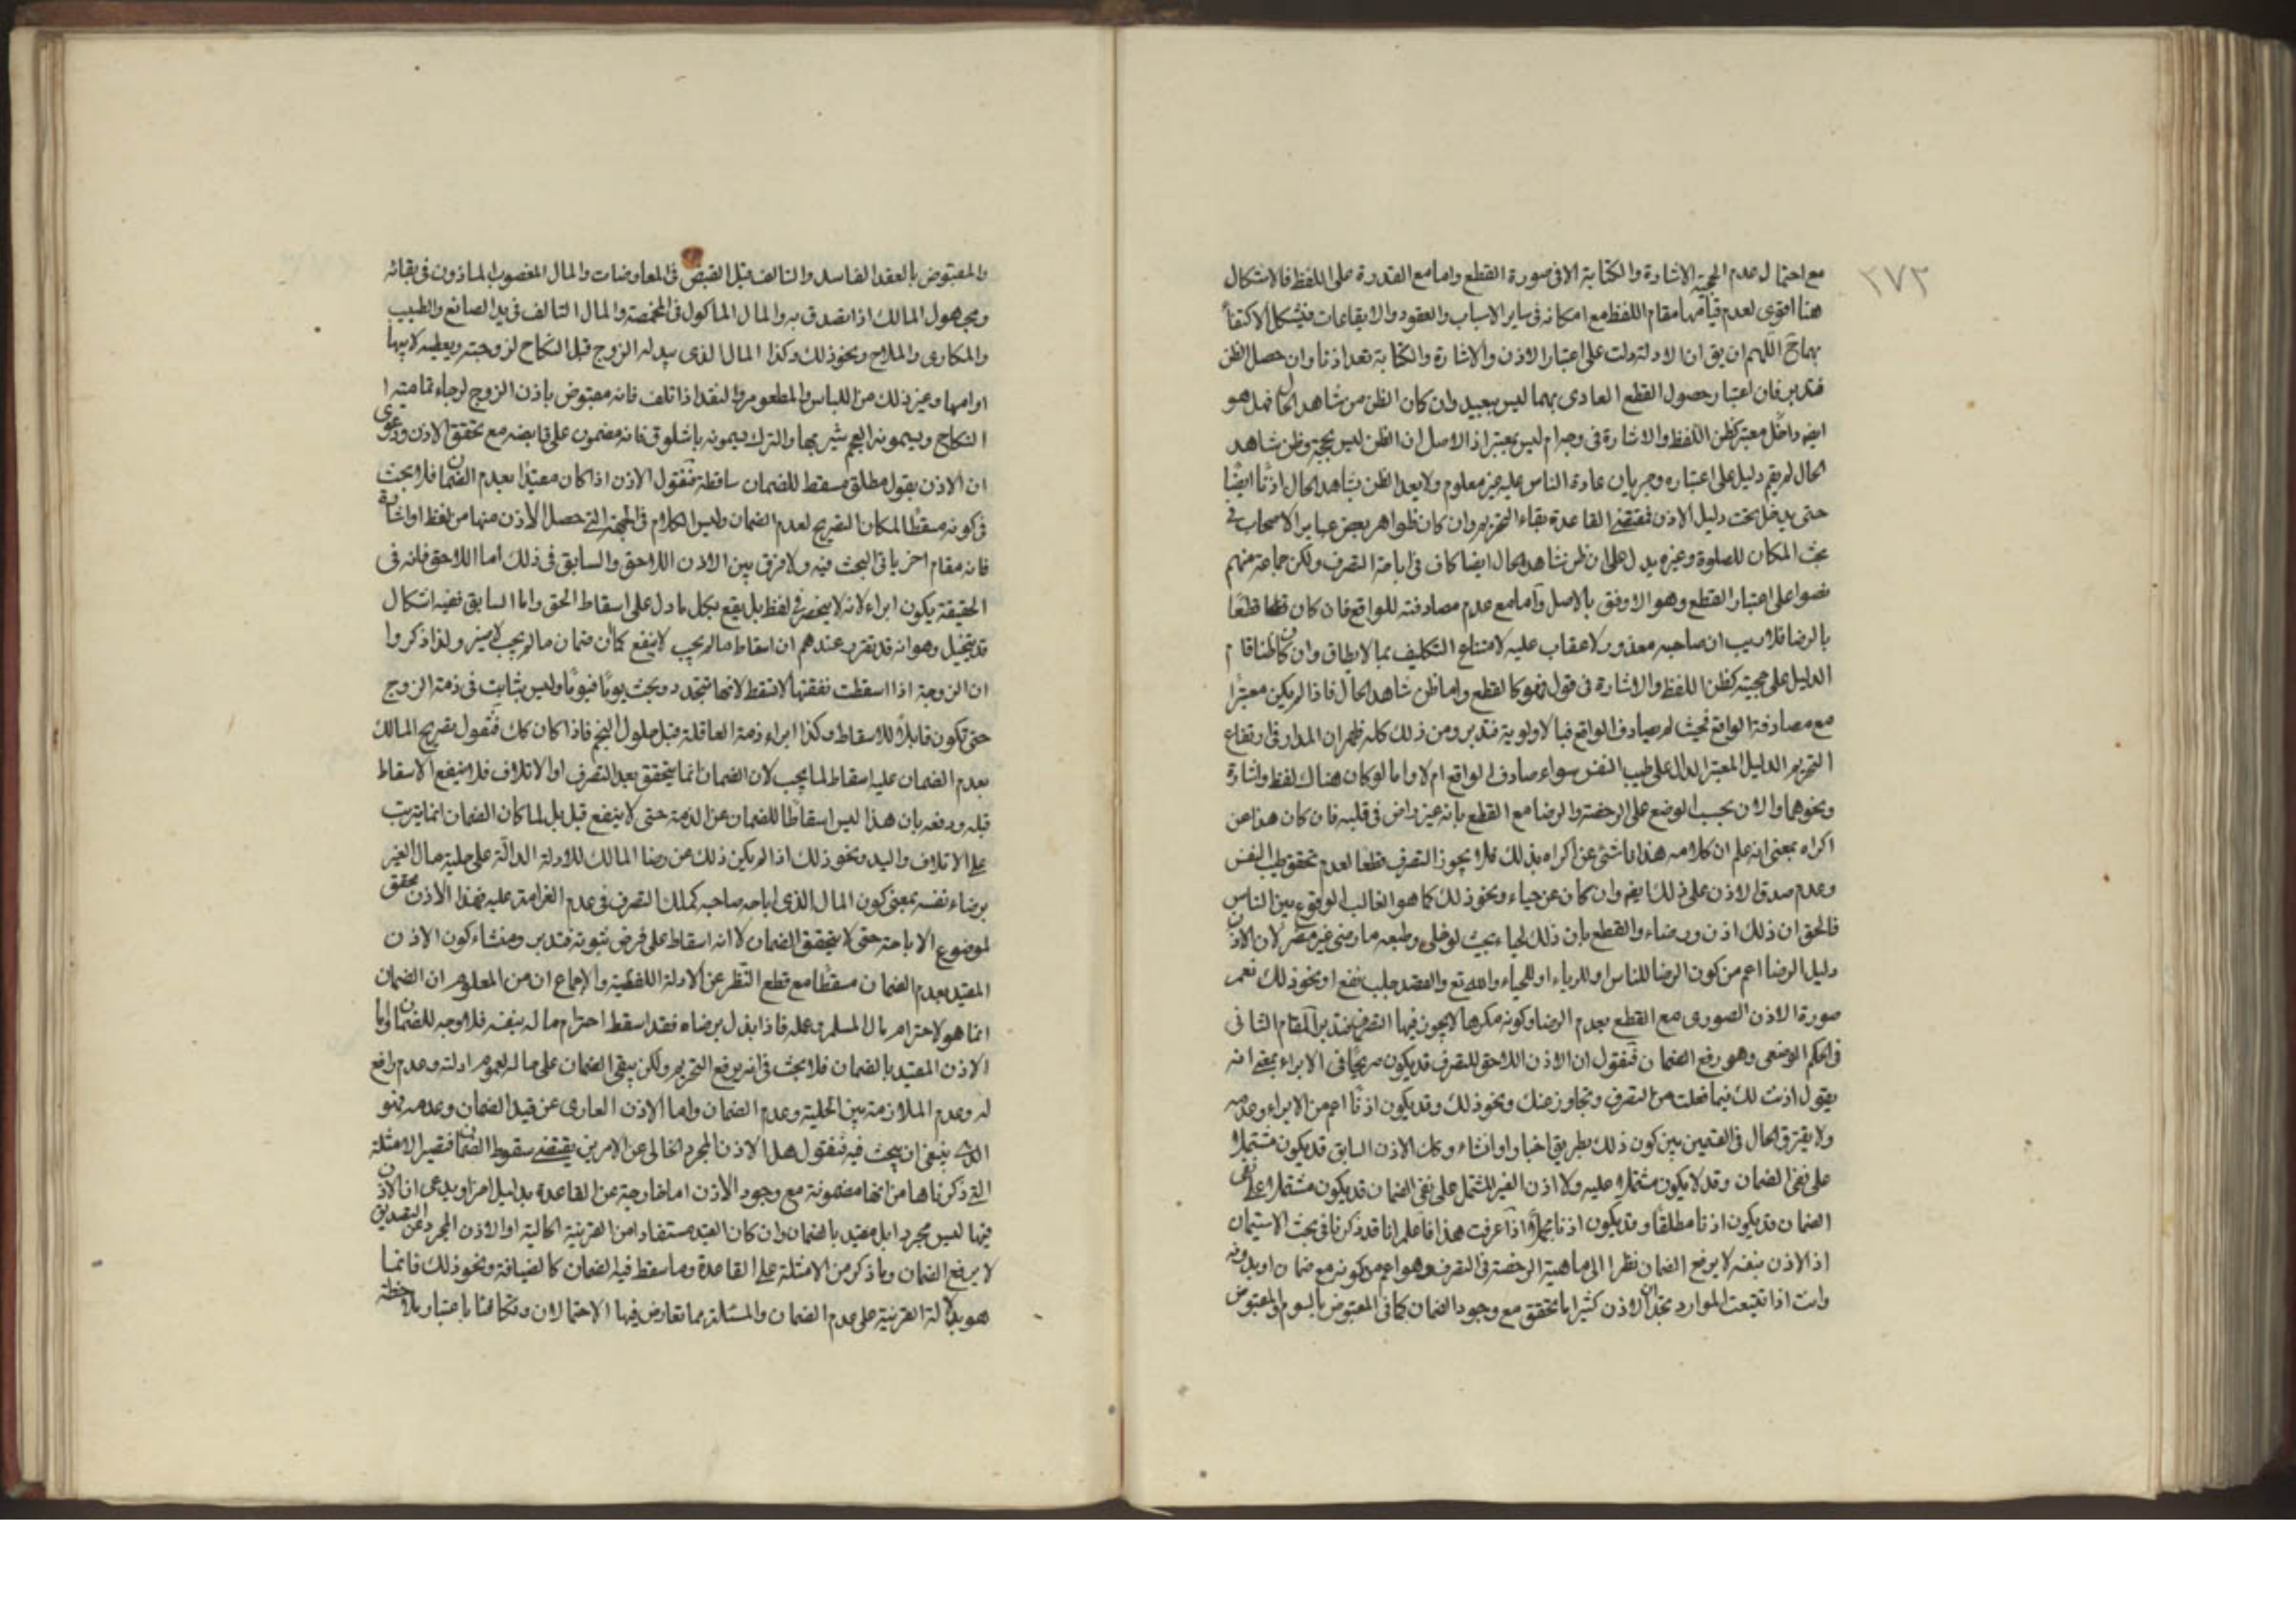 ٢٧٢
مع احتمال عدم الحجية الاشارة والكتابة الا فى صورة القطع واما مع القدرة على اللفظ فالاشكال
هنا اقوى لعدم قيامهما مقام اللفظ مع امكانه فى ساير الاسباب والعقود والايقاعات فيشكل الاكتفاء
بهما ح اللهم ان يق ان الادلة دلت على اعتبار الاذن والاشارة والكتابة تعد اذنا وان حصل الظن
فتدبر فان اعتبار حصول القطع العادى بهما ليس ببعيد وان كان الظن من شاهد الحال فهل هو
ايضا داخل معتبر كظن اللفظ والاشارة فى وجه ام ليس بمعتبر اذ الاصل ان الظن ليس بحجة وظن شاهد
الحال لم يقم دليل على اعتباره وجريان عادة الناس عليه غير معلوم ولا يعد الظن بشاهد الحال اذنا ايضا
حتى يدخل تحت دليل الاذن فمقتضى القاعدة بقاء التحريم وان كان ظواهر بعض عباير الاصحاب فى
بحث المكان للصلوة وغيره يدل على ان ظن شاهد الحال ايضا كاف فى اباحة التصرف ولكن جماعة منهم
نصوا على اعتبار القطع وهو الاوفق بالاصل واما مع عدم مصادفته للواقع فان كان قطعا قطعا
بالرضا فلا ريب ان صاحبه معذور لا عقاب عليه لامتناع التكليف بما لا يطاق وان كان ظنا قام
الدليل على حجيته كظن اللفظ والاشارة فى قول فهو كالقطع واما ظن شاهد الحال فاذا لم يكن معتبرا
مع مصادفة الواقع فحيث لم يصادف الواقع فبالاولوية فتدبر ومن ذلك كله ظهر ان المدار فى ارتفاع
التحريم الدليل المعتبر الدال على طيب النفس سواء صادف الواقع ام لا واما لو كان هناك لفظ واشارة
ونحوهما والان بحسب الوضع على الرخصة والرضا مع القطع بانه غير راض فى قلبه فان كان هذا عن
اكراه بمعنى انه علم ان كلامه هذا ناشئ عن اكراه بذلك فلا يجوز التصرف قطعا لعدم تحقق طيب النفس
وعدم صدق الاذن على ذلك ايضا وان كان عن حياء ونحو ذلك كما هو الغالب الوقوع بين الناس
فالحق ان ذلك اذن ورضاء والقطع بان ذلك لحياء بحيث لو خلى وطبعه ما رضى غير مضر لان الاذن
دليل الرضا اعم من كون الرضا للناس او للرياء او للحياء والله تع والقصد جلب نفع او نحو ذلك نعم
صورة الاذن الصورى مع القطع بعدم الرضا وكونه مكرها لا يجوز فيها التصرف فتدبر المقام الثانى
فى الحكم الوضعى وهو رفع الضمان فنقول ان الاذن اللاحق للتصرف قد يكون صريحا فى الابراء بمعنى انه
يقول اذنت لك فيما فعلت من التصرف وتجاوز عنك ونحو ذلك وقد يكون اذنا اعم من الابراء وعدمه
ولا يفترق الحال فى القسمين بين كون ذلك بطريق اخبار او انشاء وكك الاذن السابق قد يكون مشتملا
على نفى الضمان وقد لا يكون مشتملا عليه ولا اذن الغير المشتمل على نفى الضمان قد يكون مشتملا على
الضمان قد يكون اذنا مطلقا وقد يكون اذنا مجملا اذا عرفت هذا فاعلم انا قد ذكرنا فى بحث الاستيمان
اذ الاذن بنفسه لا يرفع الضمان نظرا الى ماهية الرخصة فى التصرف وهو اعم من كونه مع ضمان او بدونه
وانت اذا تتبعت الموارد تجد ان الاذن كثيرا ما تحقق مع وجود الضمان كما فى المقبوض بالسوم والمقبوض
والمقبوض بالعقد الفاسد والتالف قبل القبض فى المعاوضات والمال المغصوب الماذون فى بقائه
ومجهول المالك اذا تصدق به والمال الماكول فى المخمصة والمال التالف فى يد الصانع والطبيب
والمكارى والملاح ونحو ذلك وكذا المال الذى يبذله الزوج قبل النكاح لزوجته ويعطيه لابيها
او امها وغير ذلك من اللباس والمطعوم والنقد اذا تلف فانه مقبوض باذن الزوج لرجاء تمامية
النكاح ويسمونه العجم شيربها والترك يسمونه باشلوق فانه مضمون على قابضه مع تحقق الاذن ودعوى
ان الاذن بقول مطلق مسقط للضمان ساقطة فنقول الاذن اذا كان مقيدا بعدم الضمان فلا بحث
فى كونه مسقطا لمكان التصريح لعدم الضمان وليس الكلام فى الجهة التى حصل الاذن منها من لفظ او اشارة
فانه مقام اخر ياتى البحث فيه ولا فرق بين الاذن اللاحق والسابق فى ذلك اما اللاحق فلانه فى
الحقيقة يكون ابراء لانه لا ينحصر فى لفظ بل يقع بكل ما دل على اسقاط الحق واما السابق ففيه اشكال
قد يتخيل وهو انه قد تقرر عندهم ان اسقاط ما لم يجب لا ينفع كما ان ضمان ما لم يجب لا يثمر ولذا ذكروا
ان الزوجة اذا اسقطت نفقتها لا تسقط لانها تتجدد وبحث يوما فيوما وليس بثابت فى ذمة الزوج
حتى تكون قابلا للاسقاط وكذا ابراء ذمة العاقلة قبل حلول النجم فاذا كان كك فنقول تصريح المالك
بعدم الضمان عليه اسقاط لما يجب لان الضمان انما يتحقق بعد التصرف او الاتلاف فلا ينفع الاسقاط
قبله ودفعه بان هذا ليس اسقاطا للضمان عن الذمة حتى لا ينفع قبل بل لما كان الضمان انما يترتب
على الاتلاف واليد ونحو ذلك اذا لم يكن ذلك من رضا المالك للادلة الدالة على حلية مال الغير
برضاء نفسه بمعنى كون المال الذى اباحه صاحبه كملك التصرف فى عدم الغرامة عليه فهذا الاذن محقق
لموضوع الاباحة حتى لا يتحقق الضمان لا انه اسقاط على فرض ثبوته فتدبر ومنشاء كون الاذن
المقيد بعدم الضمان مسقطا مع قطع النظر عن الادلة اللفظية والاجماع ان من المعلوم ان الضمان
انما هو لاحترام مال المسلم وعمله فاذا بذل برضاه فقد اسقط احترام ماله بنفسه فلا وجه للضمان واما
الاذن المقيد بالضمان فلا بحث فى انه يرفع التحريم ولكن يبقى الضمان على حاله لعموم ادلته وعدم رافع
له وعدم الملازمة بين الحلية وعدم الضمان واما الاذن العارى عن قيد الضمان وعدمه فهو
الذى ينبغى ان يبحث فيه فنقول هل الاذن المجرد الخالى عن الامرين يقتضى سقوط الضمان فتصير الامثلة
التى ذكرناها من انها مضمونة مع وجود الاذن اما خارجة عن القاعدة بدليل اخر او يدعى ان الاذن
فيها ليس مجردا بل مقيد بالضمان وان كان القيد مستفادا من القرينة الحالية او الاذن المجرد عن التقييد
لا يرفع الضمان وما ذكر من الامثلة على القاعدة وما سقط فيه الضمان كالضيافة ونحو ذلك فانما
هو بدلالة القرينة على عدم الضمان والمسئلة مما تعارض فيها الاحتمالان وتكافئا باعتبار ملاحظة